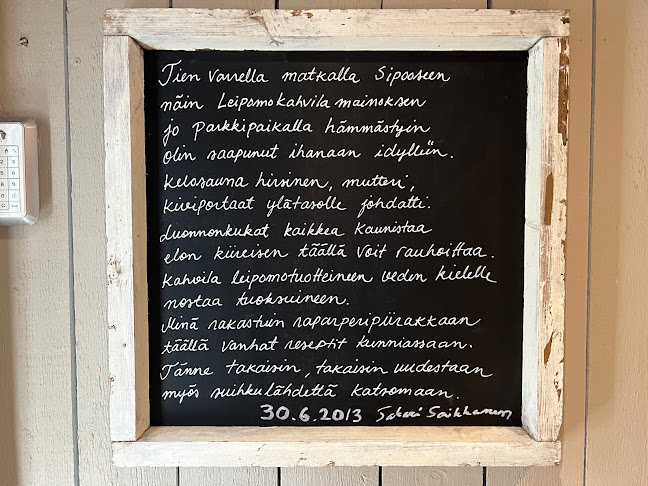 Tien varrella matkalla Sipooseen
näin Leipomokahvila mainoksen
jo parkkipaikalla hämmästyin
olin saapunut ihanaan idylliin.
Kelosauna hirsinen, mutteri,
kiviportaat ylätasolle johdatti.
Luonnonkukat kaikkea kaunistaa
elon kiireisen täällä voit rauhoittaa.
Kahvila leipomotuotteineen veden kielelle
nostaa tuoksuineen.
Minä rakastuin raparperipiirakkaan
täällä vanhat reseptit kunniassaan.
Tänne takaisin, takaisin uudestaan
myös suihkulähdettä katsomaan.
30.6.2013